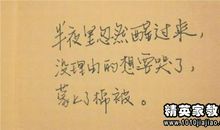 半夜里忽然醒过来，
没理由的想要哭了，
蒙上了棉被。
精英家教
www.1010jiajiao.com